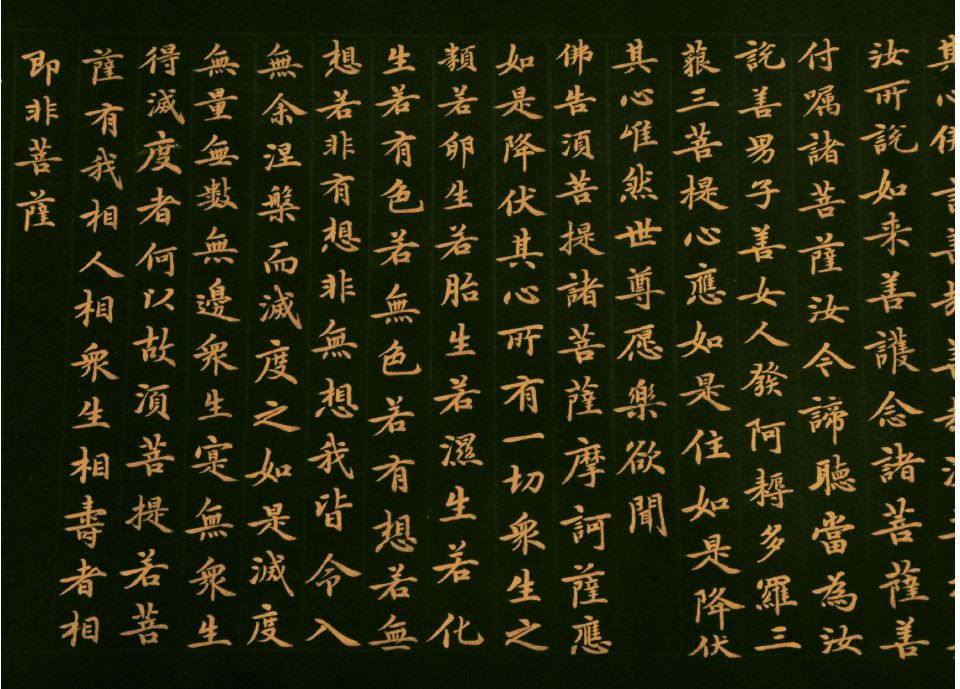 其心佛言善哉善哉須
汝所說如来善護念諸菩薩善
付嘱諸菩薩汝今諦聽當為汝
說善男子善女人發阿耨多羅三
藐三菩提心應如是住如是降伏
其心唯然世尊愿樂欲聞
佛告須菩提諸菩薩摩訶薩應
如是降伏其心所有一切衆生之
類若卵生若胎生若濕生若化
生若有色若無色若有想若無
想若非有想非無想我皆令入
無余涅槃而滅度之如是滅度
無量無數無邊衆生寔無衆生
得滅度者何以故須菩提若菩
薩有我相人相衆生相壽者相
即非菩薩